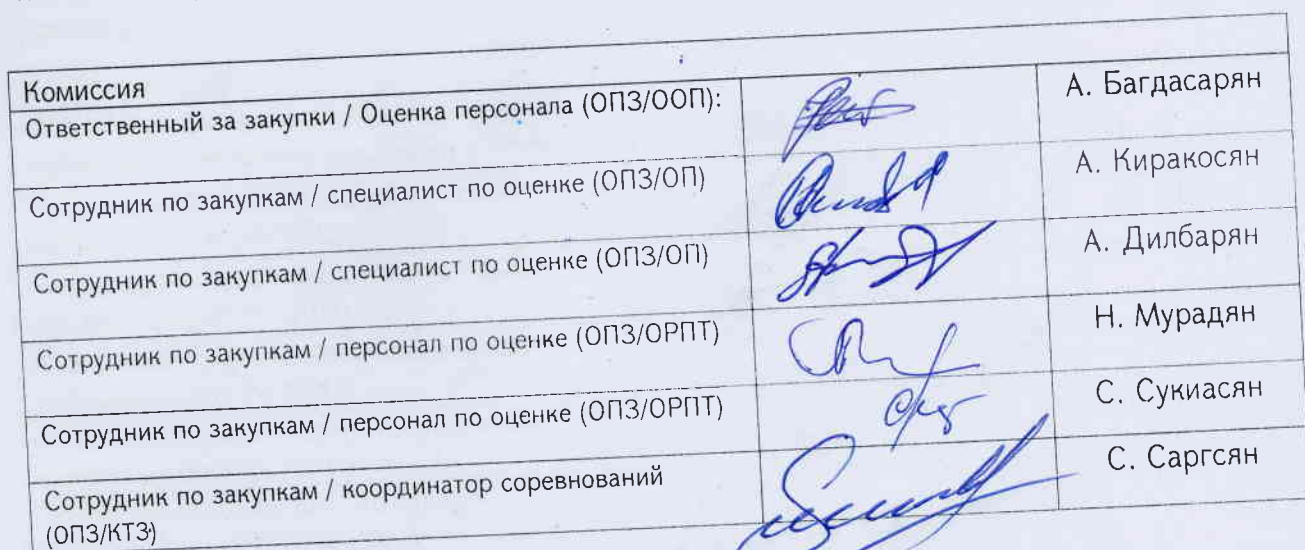 Комиссия
Ответственный за закупки / Оценка персонала (ОПЗ/ООП): А. Багдасарян
Сотрудник по закупкам / специалист по оценке (ОПЗ/ОП) А. Киракосян
Сотрудник по закупкам / специалист по оценке (ОПЗ/ОП) А. Дилбарян
Сотрудник по закупкам / персонал по оценке (ОПЗ/ОРПТ) Н. Мурадян
Сотрудник по закупкам / персонал по оценке (ОПЗ/ОРПТ) С. Сукиасян
Сотрудник по закупкам / координатор соревнований С. Саргсян
(ОПЗ/КТЗ)